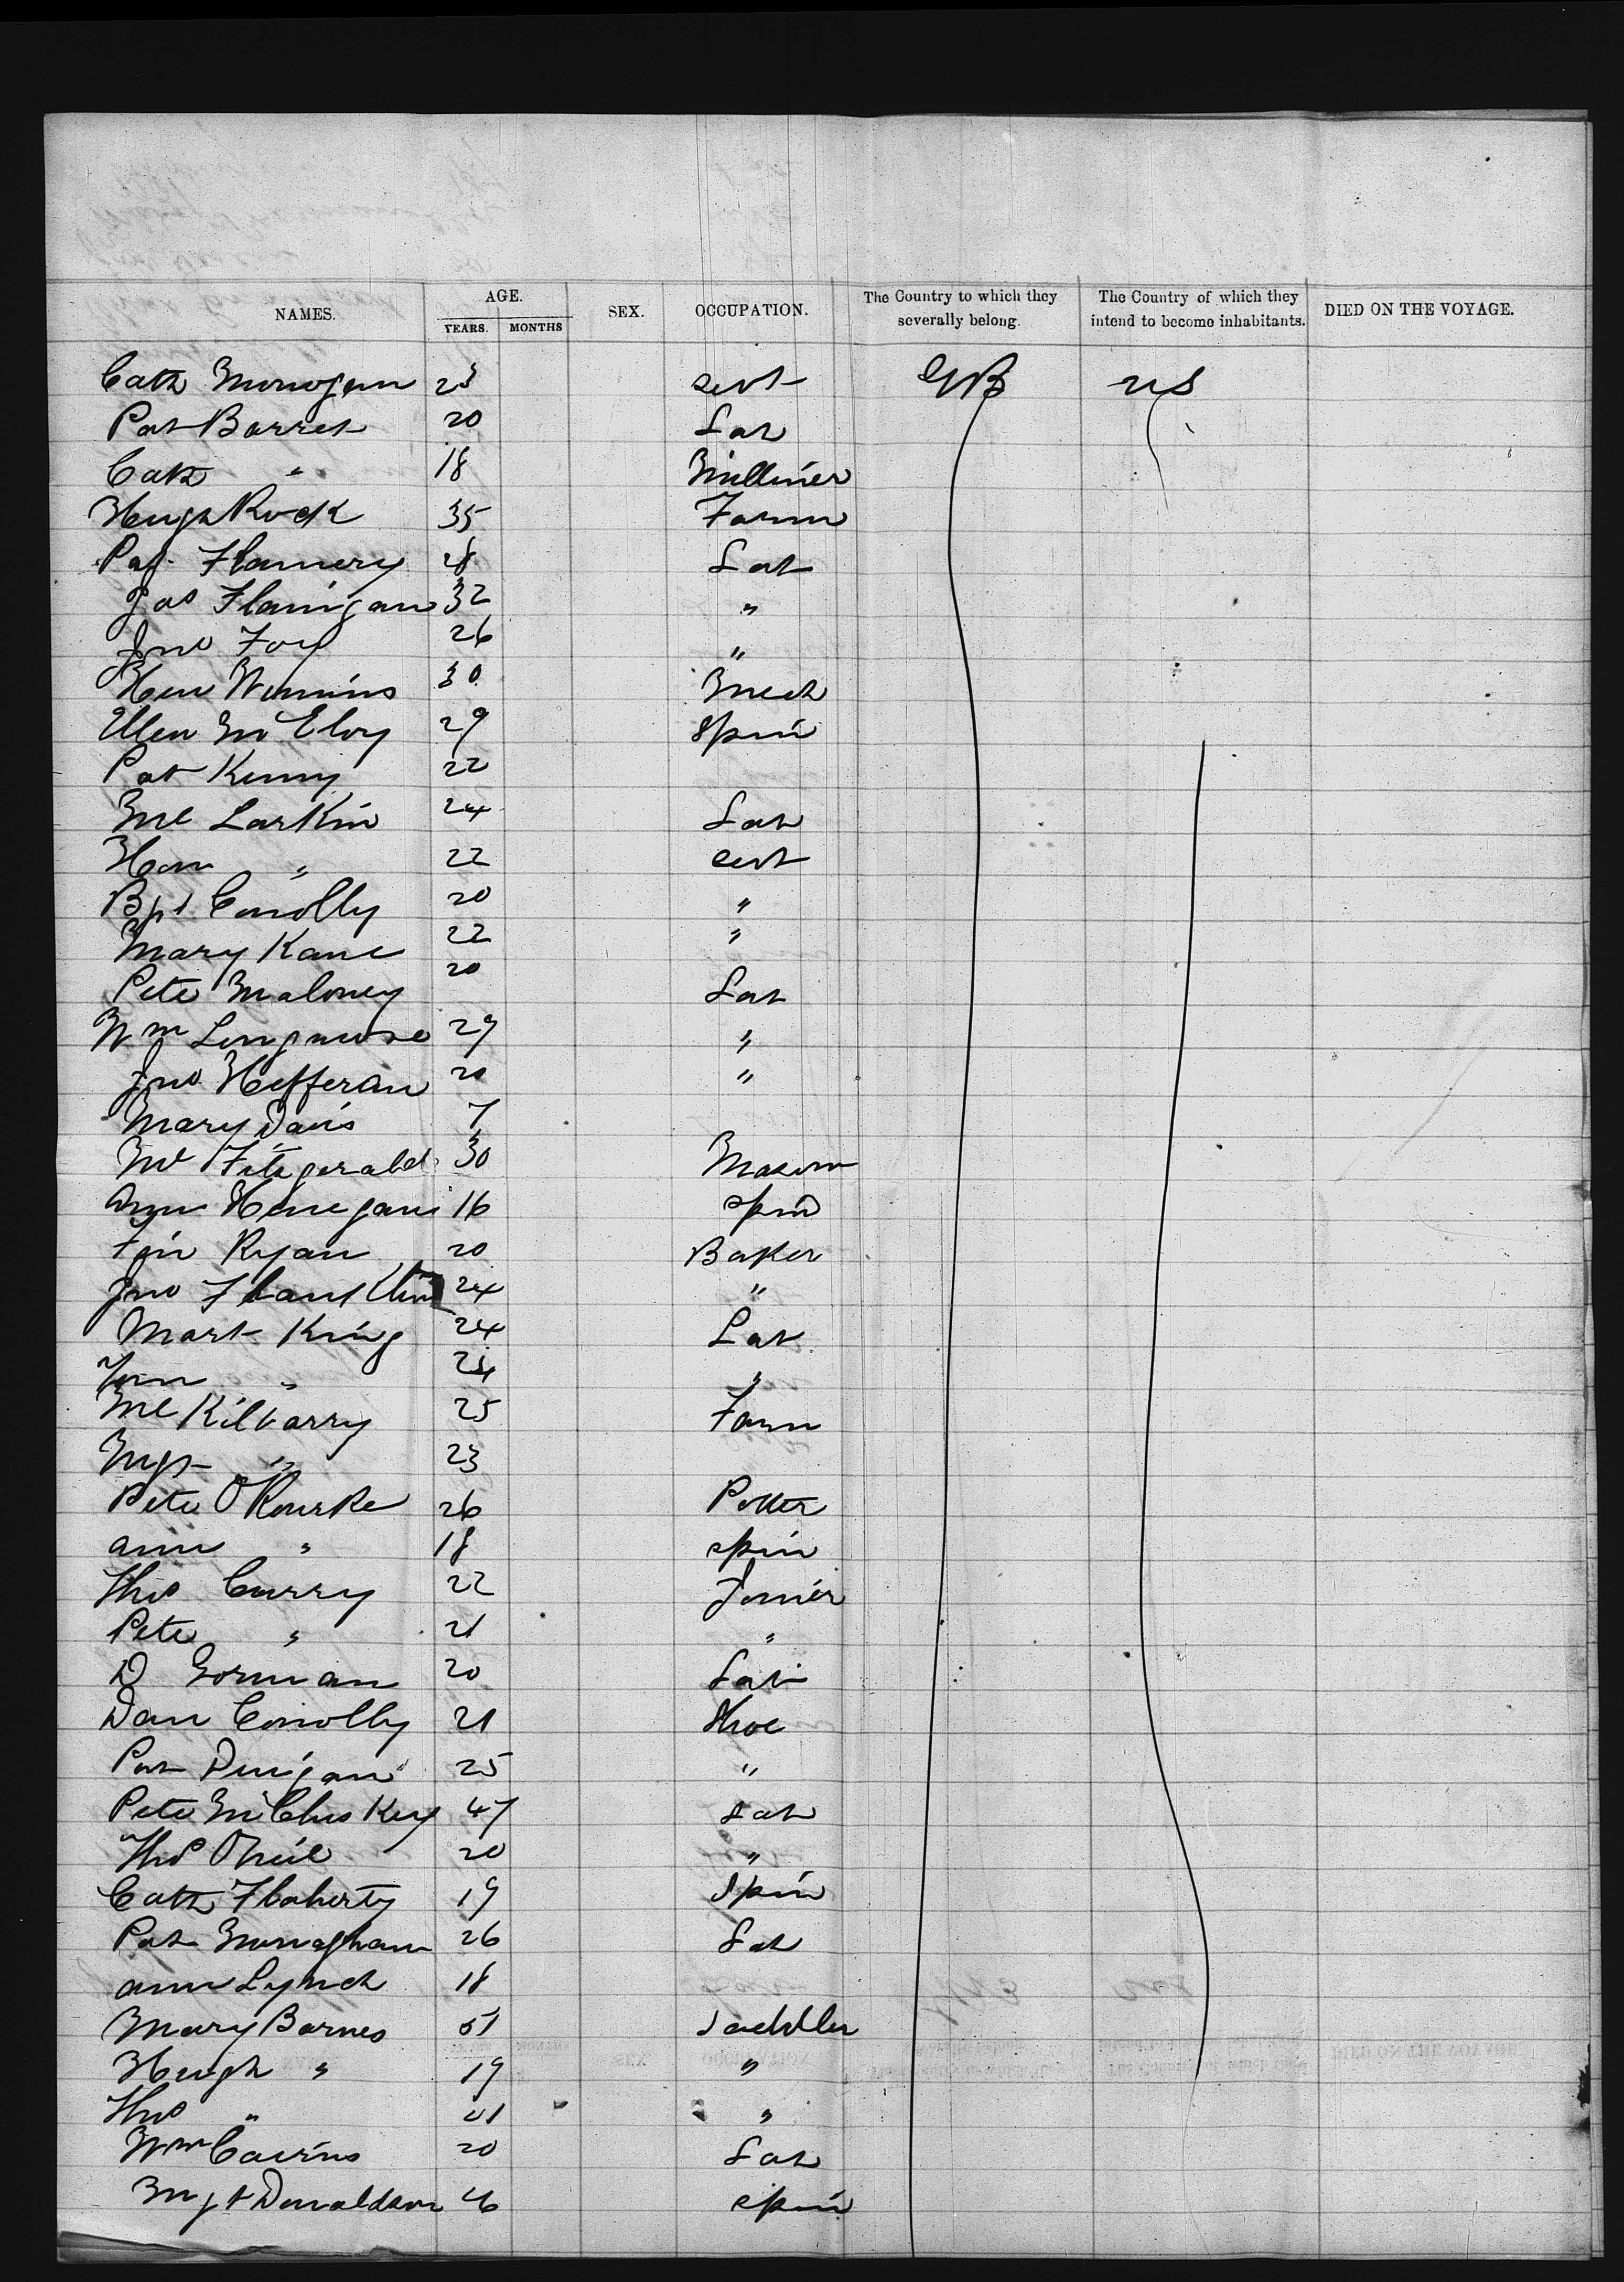 NAMES. AGE. SEX. OCCUPATION. The Country to which they severally belong. The Country of which they intend to become inhabitants. DIED ON THE VOYAGE.
YEARS. MONTHS
Cath Monogan 23 Servt GB US
Pat Barret 20 Lab
Cath " 18 Milliner
Hugh Rock 35 Farm
Pat Flannery 28 Lab
Jas Flanigan 32 "
Jno Foy 26 "
Hen 30 Mech
Ellen McElroy 29 Spin
Pat Kenny 22
Ml Larkin 24 Lab
Han " 22 Servt
Bgt Conolly 20 "
Mary Kane 22 "
Pete Maloney 20 Lab
Wm 29 "
Jno Hefferan 20 "
Mary Davis 7
Ml Fitzgerald 30 Mason
Ann Henegan 16 Spin
Ryan 20 Baker
Jno 24 "
Mart King 24 Lab
" 24 "
Ml Kilbarry 25 Farm
Mgt " 23
Pete O'Rourke 26 Potter
Ann " 18 Spin
Thos Curry 22 Joiner
Pete " 21 "
D Gorman 20 Lab
Dan Conolly 21 Shoe
Pat Duigan 25 "
Pete McCluskey 47 Lab
Thos O'Neil 20 "
Cath Flaherty 19 Spin
Pat Monaghan 26 Lab
Ann Lynch 18
Mary Barnes 51 Saddler
Hugh " 19 "
Thos " 21 "
Wm Cairns 20 Lab
Mgt Donaldson Spin